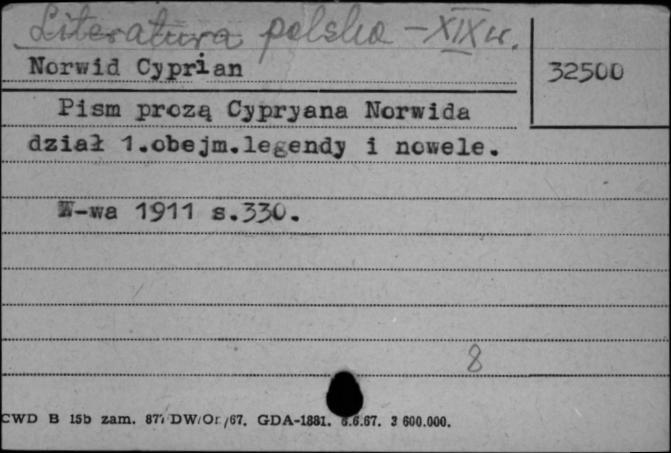 Literatura polska - XIX w.
Norwid Cyprian
32500
Pism prozą Cypryana Norwida
dział 1.obejm.legendy i nowele.
W-wa 1911 s.330.
8
CWD B 15b zam. 87/DW/Or/67. GDA-1881. 6.6.67. 3 600.000.